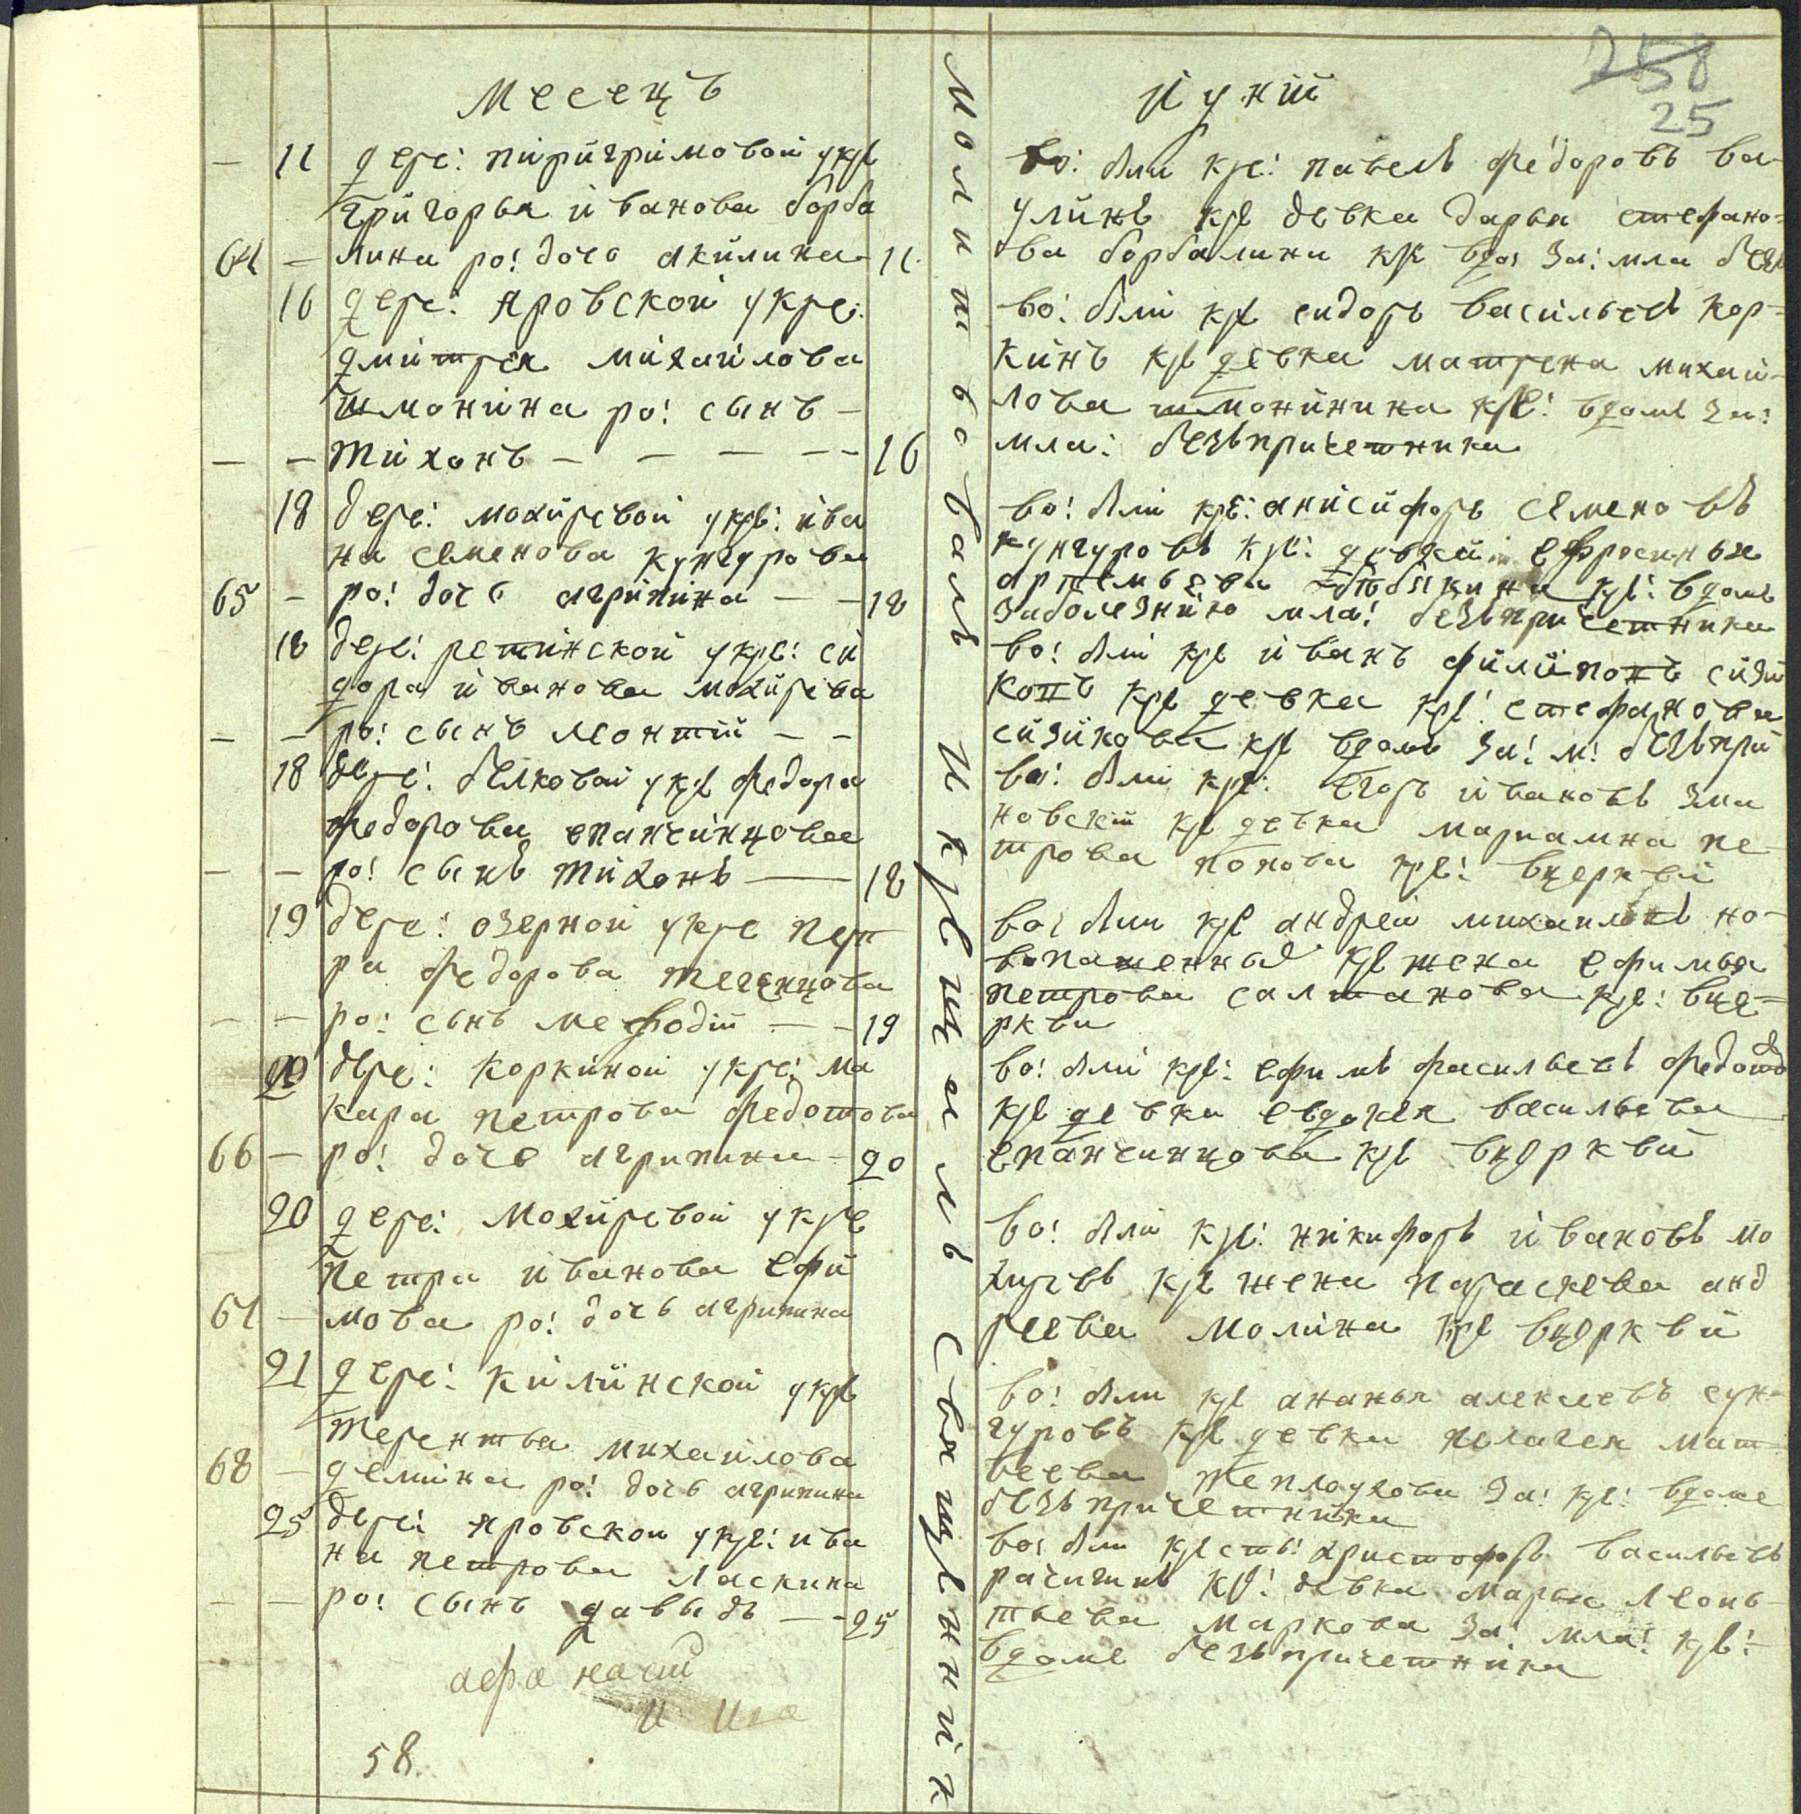 258
25
Месецъ
Иуній
— 11 дере: пиригримовой у кре
григорья иванова борба
64 — лина ро: дочь акилина — 11
16 дере: Яровской у кре:
дмитрея михаилова
шмонина ро: сынъ —
— — тихонъ — — — — 16
18 дере: мохиревой у кре: ива
на семенова кунгурова
65 — ро: дочь агрипина — — 18
18 дере: решинской у кре: си
дора иванова мохирева
— — ро: сынъ леонтiй — —
18 дере: белковой у кре федора
федорова епанчинцова
— — ро: сынъ тихонъ — 18
19 дере: озерной у кре пет
ра федорова тегенцова
— — ро: сынъ мефодiй — — 19
20 дере: коркиной у кре: ма
кара петрова федотова
66 — ро: дочь агрипина — 20
20 дере: мохиревой у кре
петра иванова ефи
67 — мова ро: дочь агрипина
21 дере: килинской у кре
терентья михаилова
68 — демина ро: дочь агрипина
25 дере: яровской у кре: ива
на петрова ласкина
— — ро: сынъ давыдъ — — 25
58.
молитвовалъ и крещалъ священник
во: бли кре: павелъ федоровъ ва-
улинъ кре девка дарья стефано-
ва борбалина кре вдо: за: мла без
во: бли кре сидоръ васильевъ кор-
кинъ кре девка матрена михай-
лова шмонинина кре: вдоме за:
мла: безъпричетника
во: бли кре: анисифоръ семеновъ
кунгуровъ кре: ефросинья
артемьева кре: вдоме
заболезнию мла: безъпричетника
во: бли кре иванъ филипопъ сизи
копъ кре девка кре: стефанова
сизикова кре вдоме за: м: безъпри
во: бли кре: егоръ ивановъ зма
новскiй кре девка мариамна пе-
трова попова кре: вцеркви
во: бли кре андрей михаиловъ но-
вопашенныхъ кре жена ефимья
петрова салтанова кре: вце-
ркви
во: бли кре: ефимъ фасильевъ федотов
кре девка евдокея васильева
епанчинцова кре вцеркви
во: бли кре: никифоръ ивановъ мо
хиревъ кре жена параскева анд
реева молина кре вцеркви
во: бли кре ананья алексеевъ сун-
гуровъ кре девка пелагея мат
веева теплоухова за: кре: вдоме
безъпричетника
во: бли кресть: христофоръ васильевъ
рачигинъ кре: девка марья леонь-
тьева маркова за: мла: кре:
вдоме безъпричетника